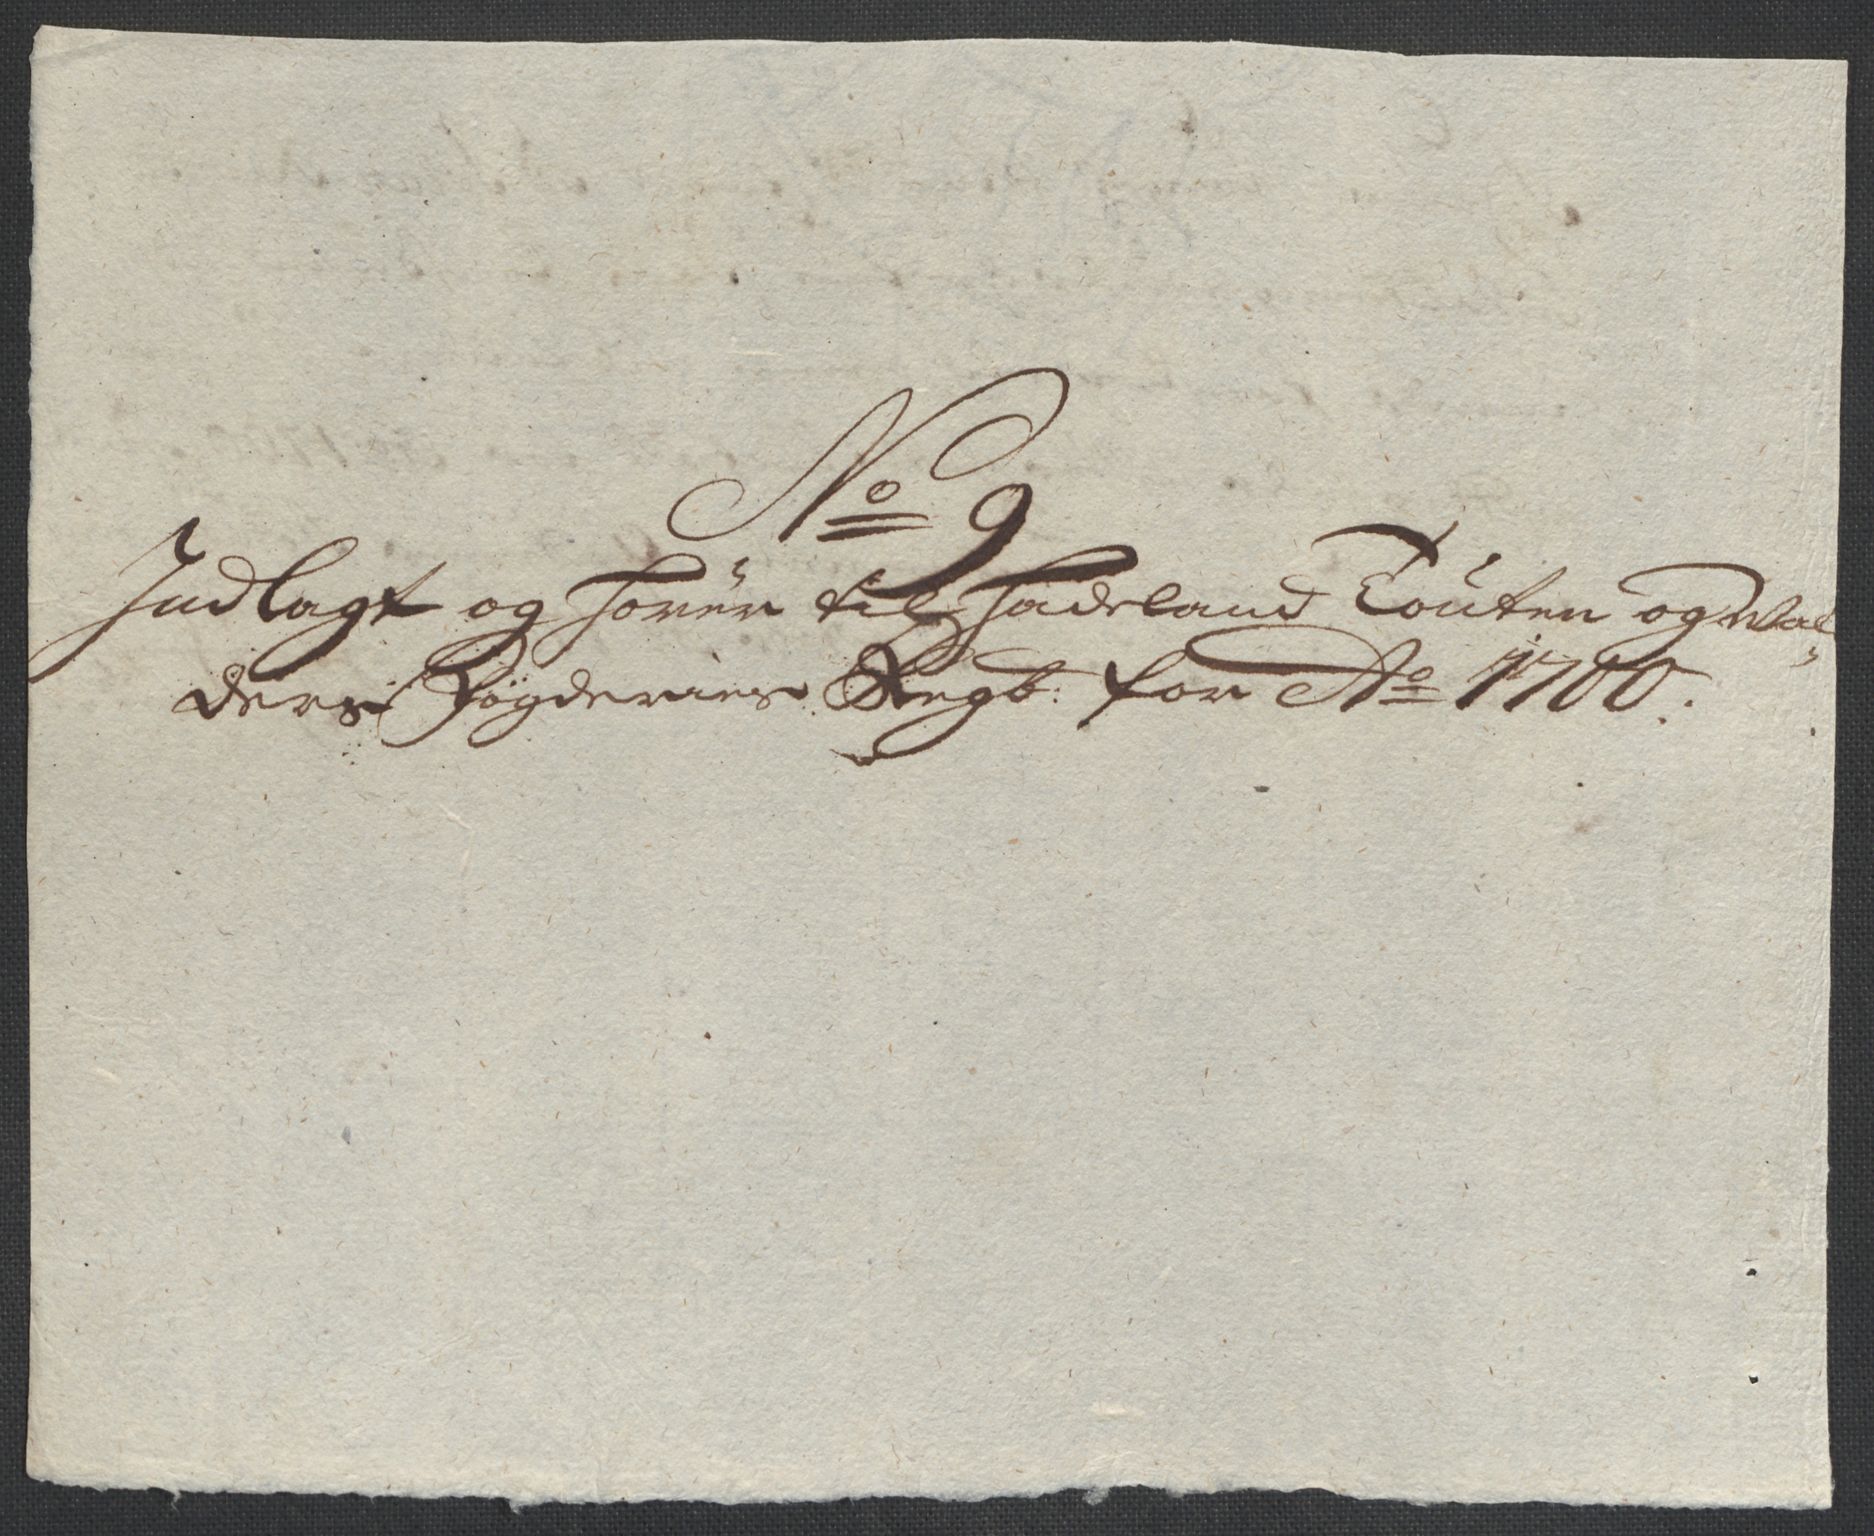 No 9
Indlagt og hörer til Hadeland Touten og Wal
ders Fögderies Regb: for Ao 1700.